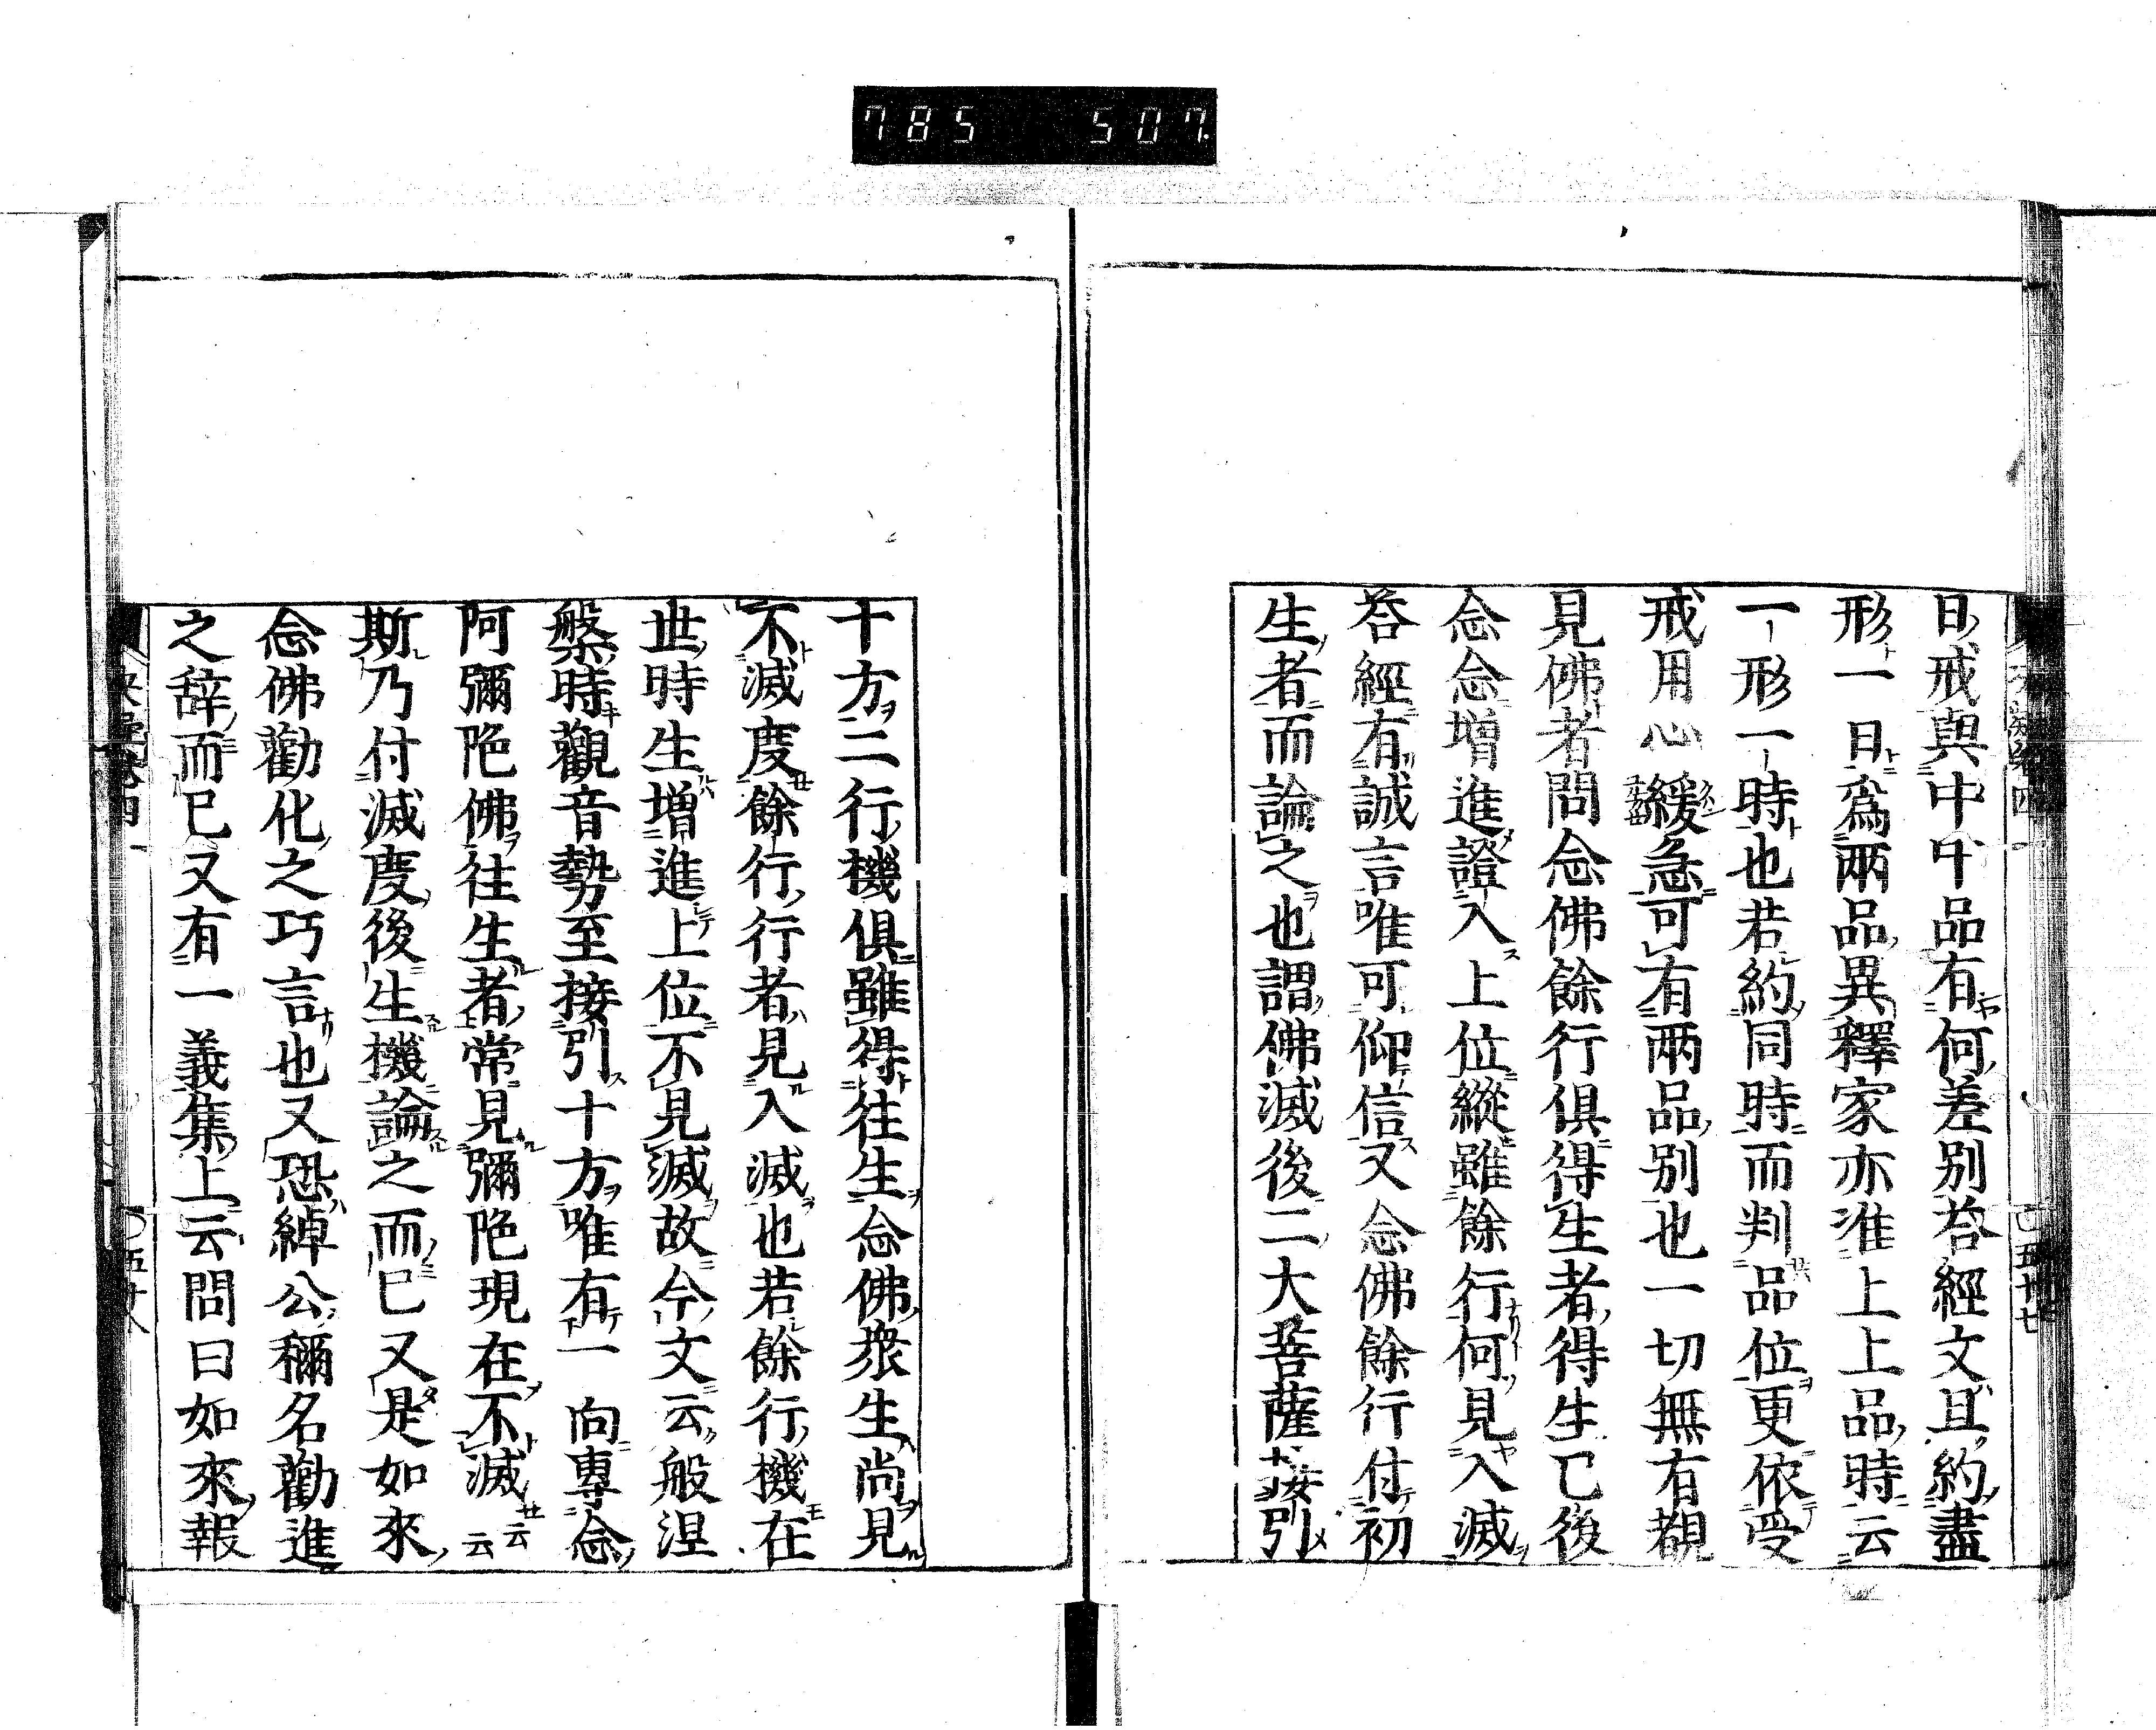 785 507
日戒與中中品有何差別荅經文且約盡
形一日爲兩品異釋家亦准上上品時云
一形一時也若約同時而判品位更依受
戒用心緩急可有兩品別也一切無有覩
見佛者問念佛餘行俱得生者得生已後
念念增進證入上位縱雖餘行何見入滅
荅經有誠言唯可仰信又念佛餘行付初
生者而論之也謂佛滅後二大菩薩接引
十方二行機俱雖得往生念佛衆生尚見
不滅度餘行行者見入滅也若餘行機在
世時生增進上位不見滅故今文云般涅
槃時觀音勢至接引十方唯有一向專念
阿彌陀佛往生者常見彌陀現在不滅云云
斯乃付滅度後生機論之而已又是如來
念佛勸化之巧言也又恐綽公稱名勸進
之辞而已又有一義集上云問曰如來報